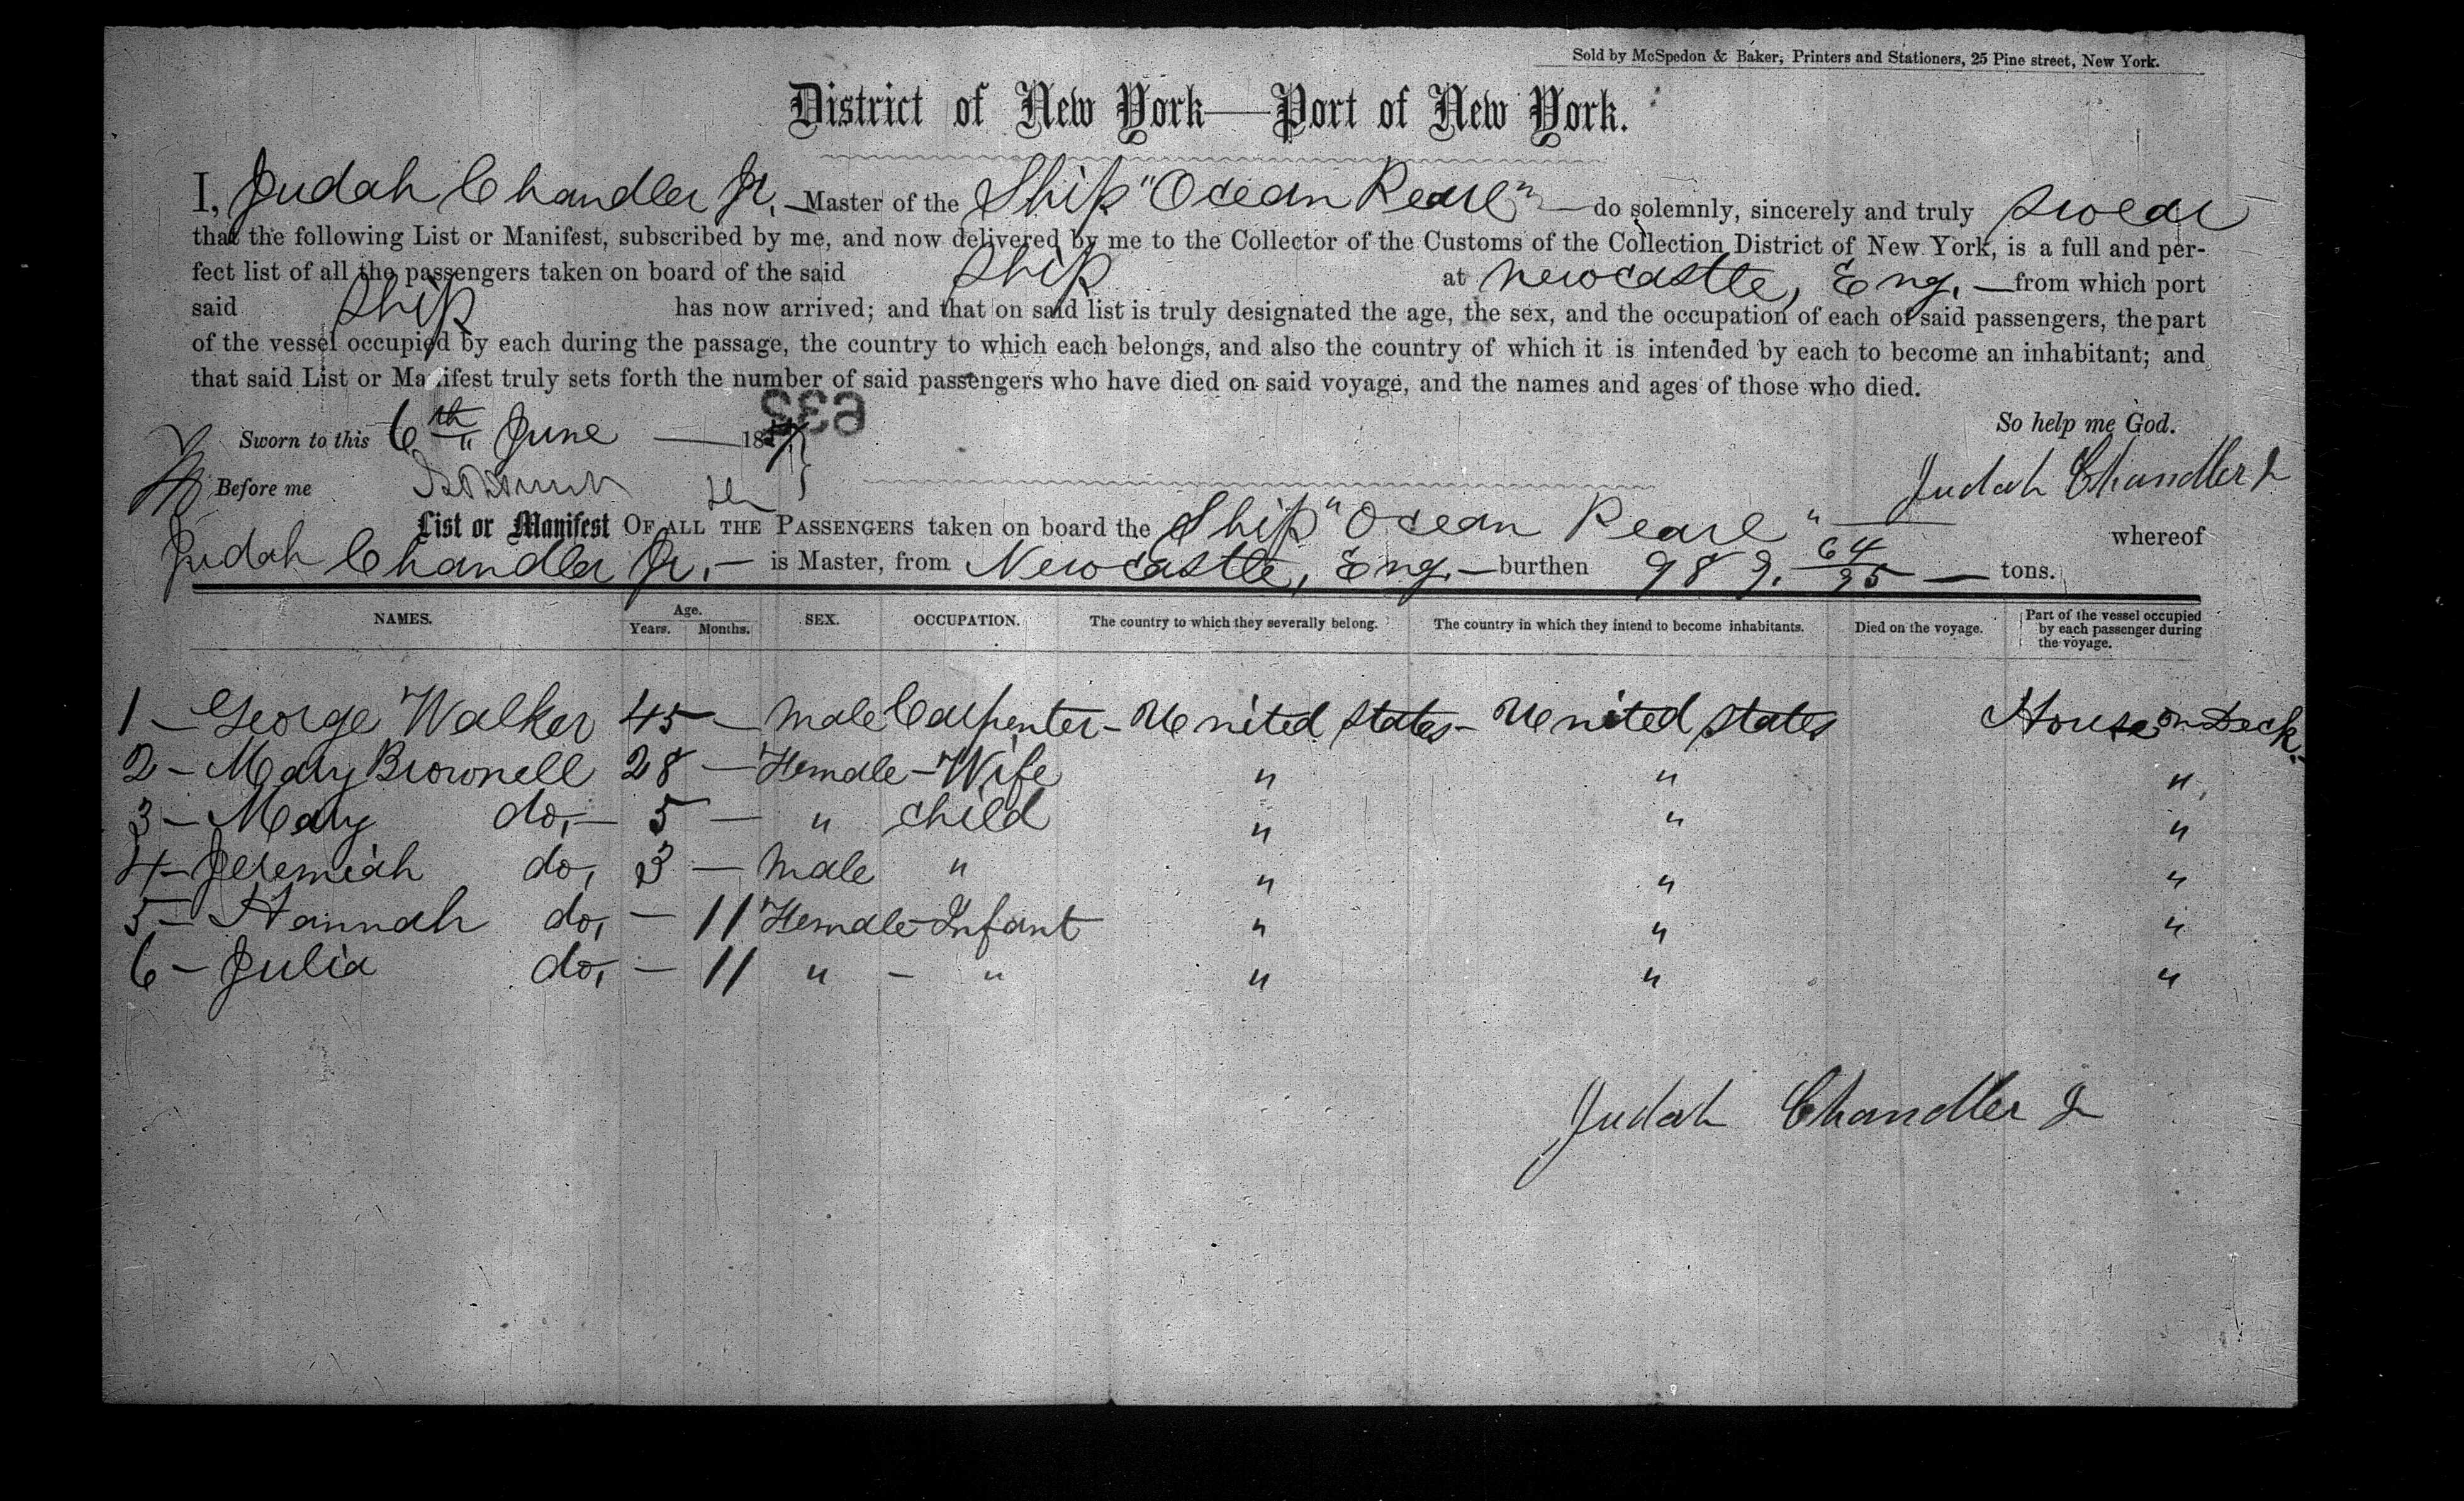 Sold by McSpedon & Baker, Printers and Stationers, 25 Pine street, New York.
District of New York—Port of New York.
I, Judah Chandler Jr. — Master of the Ship "Ocean Pearl" — do solemnly, sincerely and truly swear
that the following List or Manifest, subscribed by me, and now delivered by me to the Collector of the Customs of the Collection District of New York, is a full and per-
fect list of all the passengers taken on board of the said Ship at Newcastle, Eng. — from which port
said Ship has now arrived; and that on said list is truly designated the age, the sex, and the occupation of each of said passengers, the part
of the vessel occupied by each during the passage, the country to which each belongs, and also the country of which it is intended by each to become an inhabitant; and
that said List or Manifest truly sets forth the number of said passengers who have died on said voyage, and the names and ages of those who died.
633
So help me God.
Sworn to this 6th June — 18
Judah Chandler Jr
Before me
List or Manifest OF ALL THE PASSENGERS taken on board the Ship "Ocean Pearl" — whereof
Judah Chandler Jr. — is Master, from Newcastle, Eng. — burthen 989. 64/95 — tons.
NAMES. Age. Years. Months. SEX. OCCUPATION. The country to which they severally belong. The country in which they intend to become inhabitants. Died on the voyage. Part of the vessel occupied by each passenger during the voyage.
1 — George Walker 45 — Male Carpenter — United States — United States House on Deck.
2 — Mary Brownell 28 — Female — Wife " " "
3 — Mary do, — 5 — " child " " "
4 — Jeremiah do, 3 — Male " " " "
5 — Hannah do, — 11 Female — Infant " " "
6 — Julia do, — 11 " — " " " "
Judah Chandler Jr